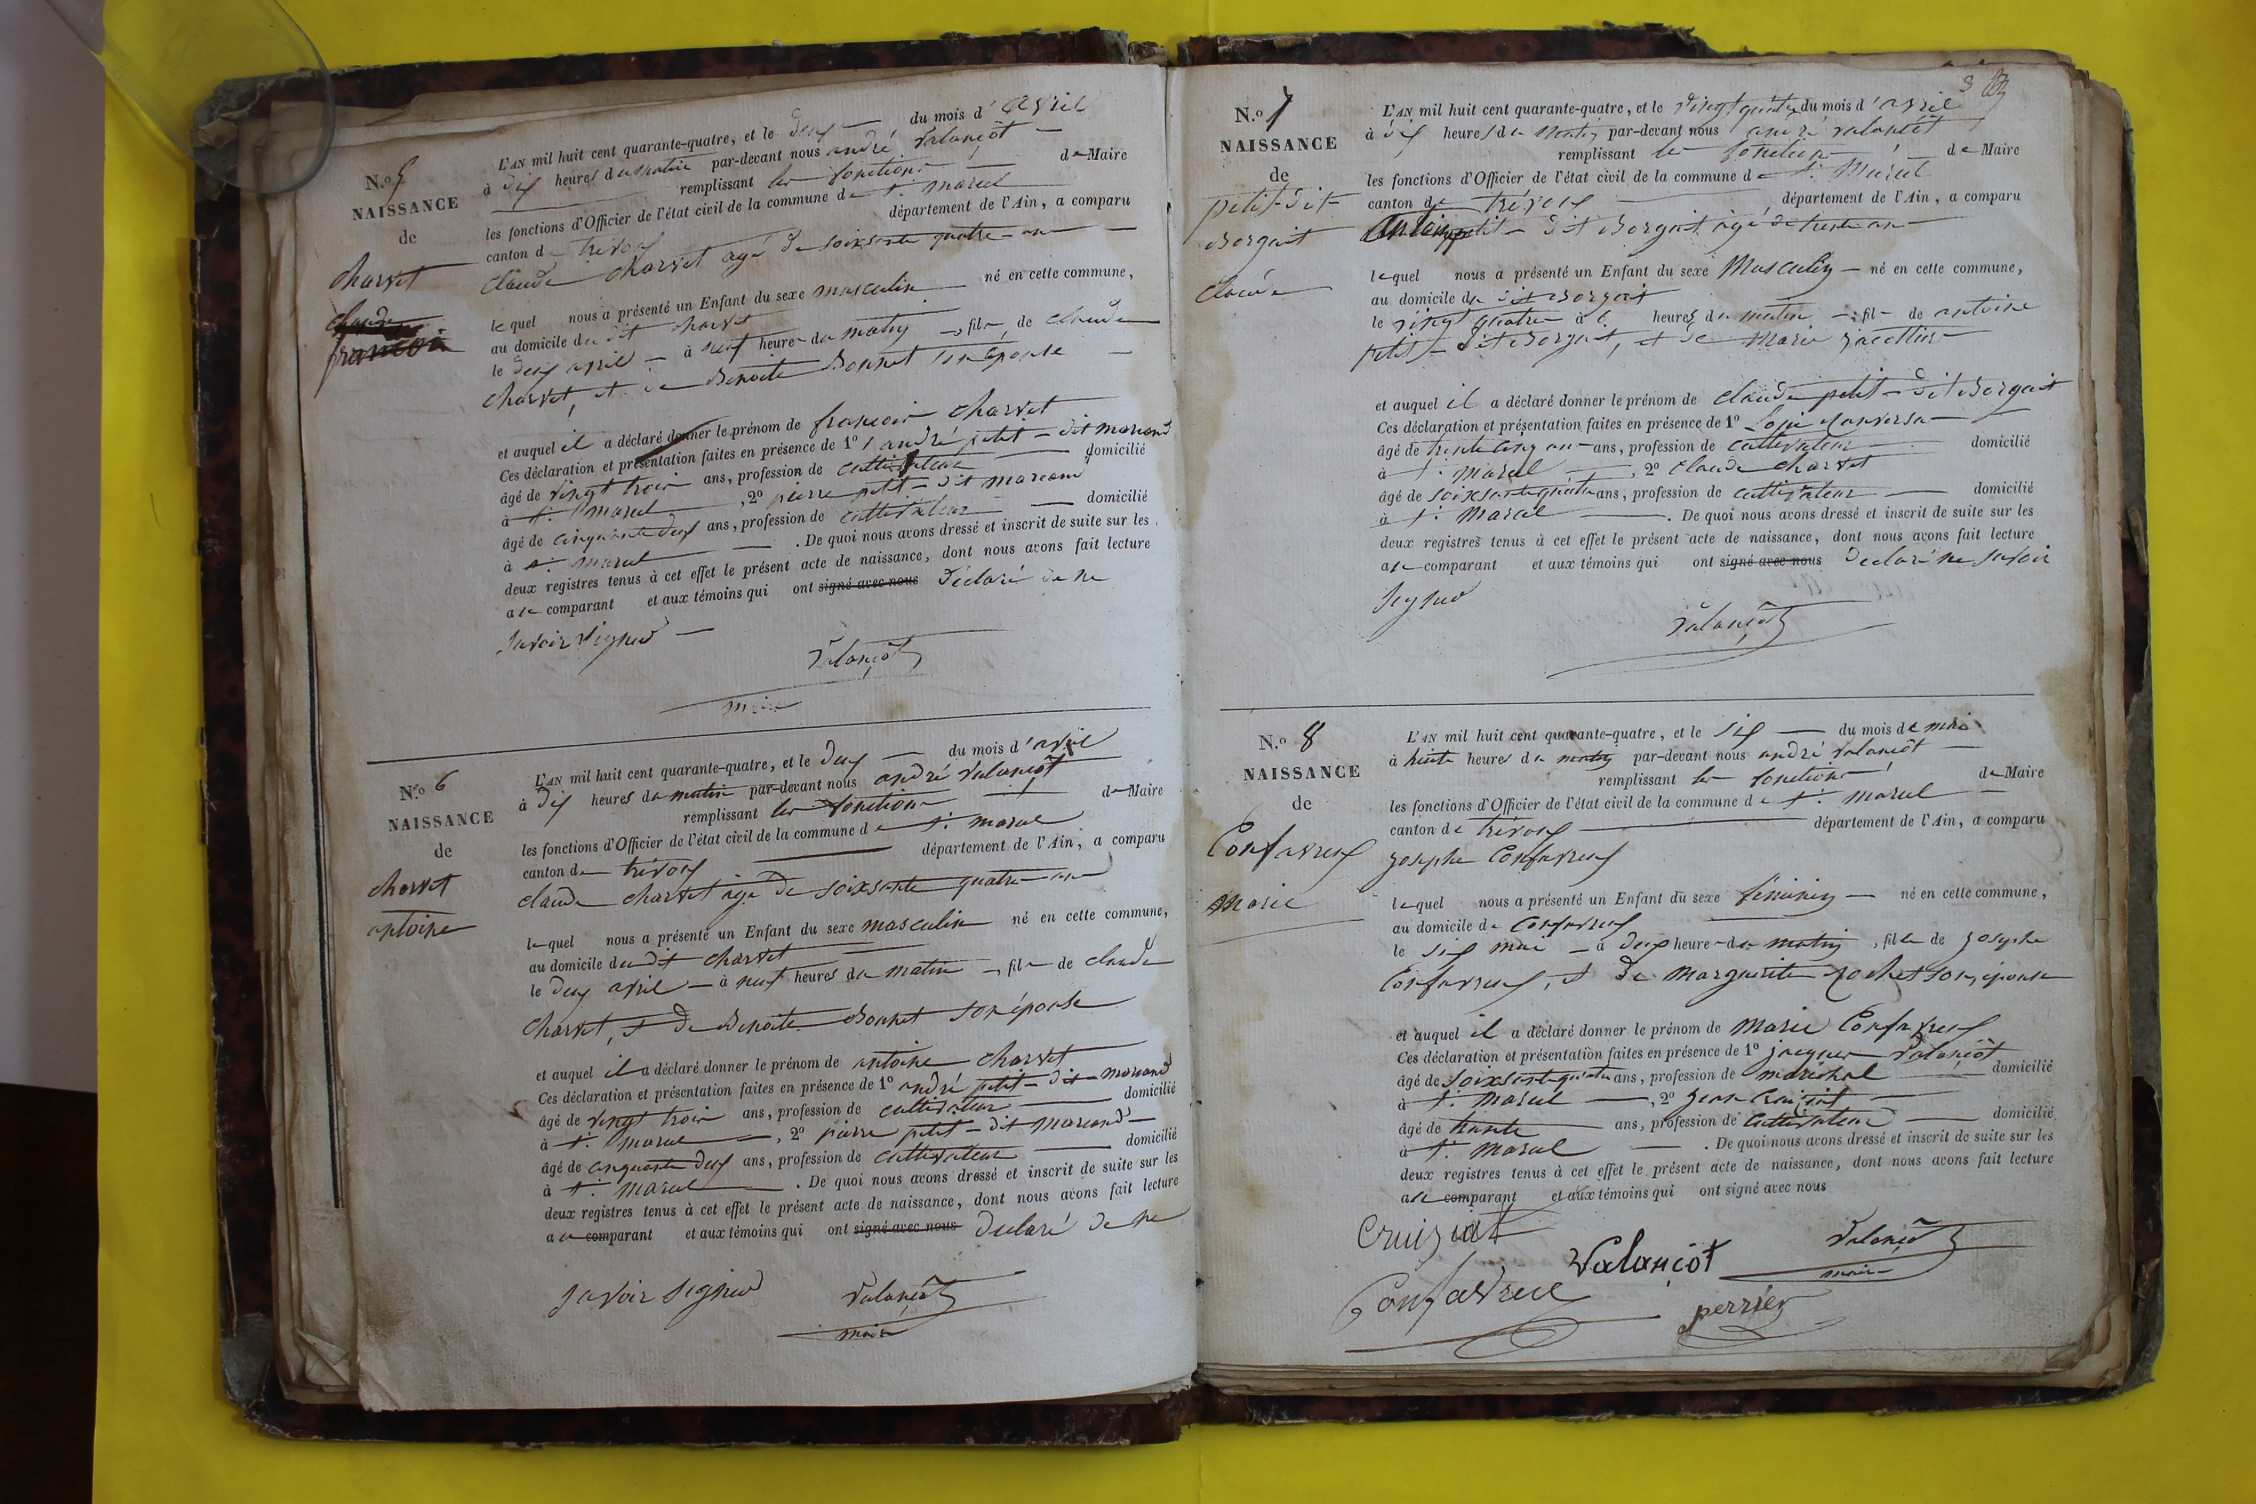 N.o 5
NAISSANCE
de
charvet
claude
francois
L'AN mil huit cent quarante-quatre, et le deux du mois d'avril
à dix heures du matin par-devant nous andré Valançôt
remplissant les fonctions de Maire
les fonctions d'Officier de l'état civil de la commune de st. marcel
canton de trévoux département de l'Ain, a comparu
claude charvet agé de soixsante quatre an
lequel nous a présenté un Enfant du sexe masculin né en cette commune,
au domicile du dit charvet
le deux avril à neuf heure du matin, fils de claude
charvet, et de Benoite Bonnet son épouse
et auquel il a déclaré donner le prénom de francois charvet
Ces déclaration et présentation faites en présence de 1o andré petit-dit marcand
âgé de vingt trois ans, profession de cultivateur domicilié
à st. marcel, 2o pierre petit-dit marcand
âgé de cinquante deux ans, profession de cultivateur domicilié
à st. marcel. De quoi nous avons dressé et inscrit de suite sur les
deux registres tenus à cet effet le présent acte de naissance, dont nous avons fait lecture
au comparant et aux témoins qui ont signé avec nous déclaré de ne
savoir signer
Valançôt
maire
N.o 6
NAISSANCE
de
charvet
antoine
L'AN mil huit cent quarante-quatre, et le deux du mois d'avril
à dix heures du matin par-devant nous andré Valançôt
remplissant les fonctions de Maire
les fonctions d'Officier de l'état civil de la commune de st. marcel
canton de trévoux département de l'Ain, a comparu
claude charvet agé de soixsante quatre an
lequel nous a présenté un Enfant du sexe masculin né en cette commune,
au domicile du dit charvet
le deux avril à neuf heures du matin, fils de claude
charvet, et de Benoite Bonnet son épouse
et auquel il a déclaré donner le prénom de antoine charvet
Ces déclaration et présentation faites en présence de 1o andré petit-dit-marcand
âgé de vingt trois ans, profession de cultivateur domicilié
à st. marcel, 2o pierre petit-dit marcand
âgé de cinquante deux ans, profession de cultivateur domicilié
à st. marcel. De quoi nous avons dressé et inscrit de suite sur les
deux registres tenus à cet effet le présent acte de naissance, dont nous avons fait lecture
au comparant et aux témoins qui ont signé avec nous declaré de ne
savoir signer
Valançôt
maire
3
N.o 7
NAISSANCE
de
petit-dit-
Borgait
claude
L'AN mil huit cent quarante-quatre, et le vingt quatre du mois d'avril
à dix heures du matin par-devant nous andré valançôt
remplissant les fonctions de Maire
les fonctions d'Officier de l'état civil de la commune de st. Marcel
canton de trévoux département de l'Ain, a comparu
antoine petit-dit Borgait agé de trente an
lequel nous a présenté un Enfant du sexe Masculin né en cette commune,
au domicile du dit Borgait
le vingt quatre à 6 heures du matin, fils de antoine
petit-dit Borgait, et de Marie jacottier
et auquel il a déclaré donner le prénom de claude petit-dit Borgait
Ces déclaration et présentation faites en présence de 1o
âgé de trente cinq ans, profession de cultivateur domicilié
à st. marcel, 2o claude charvet
âgé de soixsante quatre ans, profession de cultivateur domicilié
à st. Marcel. De quoi nous avons dressé et inscrit de suite sur les
deux registres tenus à cet effet le présent acte de naissance, dont nous avons fait lecture
au comparant et aux témoins qui ont signé avec nous declaré ne savoir
signer
Valançôt
N.o 8
NAISSANCE
de
Confavreux
Marie
L'AN mil huit cent quarante-quatre, et le six du mois de mai
à huite heures du matin par-devant nous andré valançôt
remplissant les fonctions de Maire
les fonctions d'Officier de l'état civil de la commune de st. marcel
canton de trévoux département de l'Ain, a comparu
josephe Confavreux
lequel nous a présenté un Enfant du sexe féminin né en cette commune,
au domicile de Confavreux
le six mai à deux heure du matin, fille de josephe
Confavreux, et de marguerite rochet son épouse
et auquel il a déclaré donner le prénom de marie Confavreux
Ces déclaration et présentation faites en présence de 1o jacques valançôt
âgé de soixsante quatre ans, profession de maréchal domicilié
à st. marcel, 2o jean Cruiziat
âgé de trente ans, profession de cultivateur domicilié
à st. marcel. De quoi nous avons dressé et inscrit de suite sur les
deux registres tenus à cet effet le présent acte de naissance, dont nous avons fait lecture
au comparant et aux témoins qui ont signé avec nous
Cruiziat
Valançôt
Valançôt
maire
Confavreux
perrier